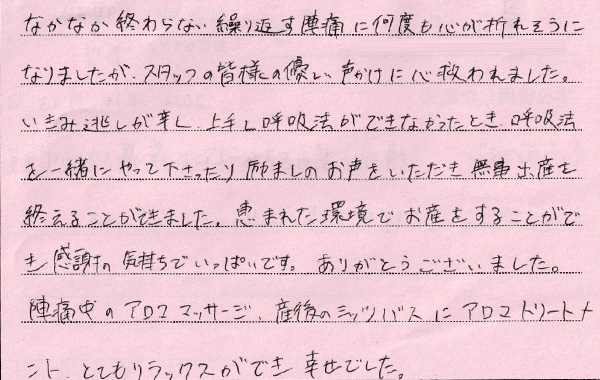 なかなか終わらない繰り返す陣痛に何度も心が折れそうに
なりましたが、スタッフの皆様の優しい声かけに心救われました。
いきみ逃しが辛く、上手く呼吸法ができなかったとき、呼吸法
を一緒にやって下さったり励ましのお声をいただき無事出産を
終えることができました。恵まれた環境でお産をすることがで
き感謝の気持ちでいっぱいです。ありがとうございました。
陣痛中のアロママッサージ、産後のミッツバスにアロマトリートメ
ント、とてもリラックスができ幸せでした。